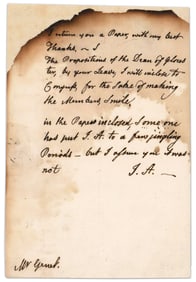 I return you a Paper, with my best
Thanks, ~ I
The Propositions of the Dean of Gloces
ter, by your Leave, I will inclose to
Congress, for the Sake of making
the Members Smile,
in the Papers inclosed, Some one
has put J. A. to a few jingling
Periods — but I assure you I was
not J. A. —
Mr